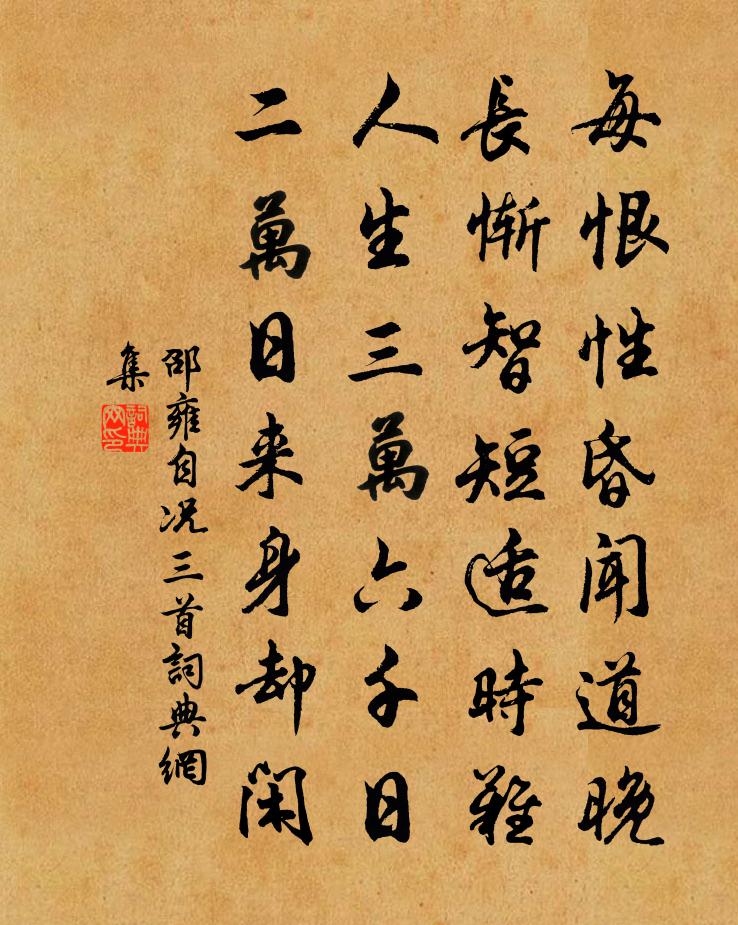 每恨性昏聞道晚
長慚智短适時難
人生三萬六千日
二萬日来身却閑
邵雍自况三首詞典網
集
詞典
网印